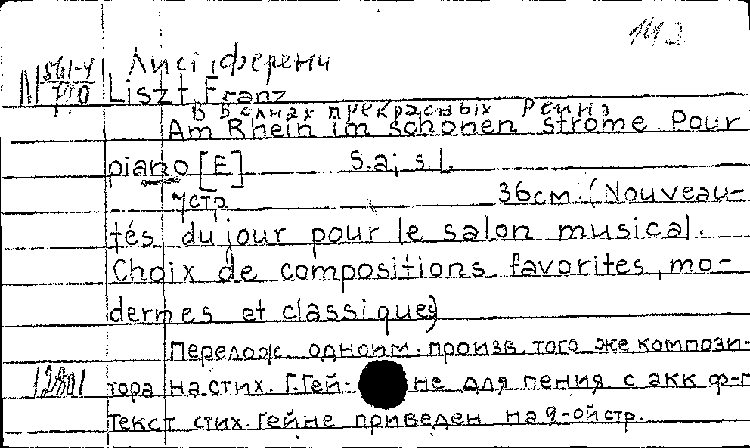 1412
Лист, Ференц
N 561-4/710 Liszt, Franz
В волнах прекрасных Рейна
Am Rhein im schonen strome Pour
piano [E] S.a; s.l.
4стр. 36см. (Nouveau-
tés du jour pour le salon musical.
Choix de compositions favorites, mo-
dernes et classiques)
Перелож. одноим. произв. того же компози-
12801 тора на стих. Г.Гей- не для пения с акк ф-п
Текст стих. Гейне приведен на 2-ой стр.